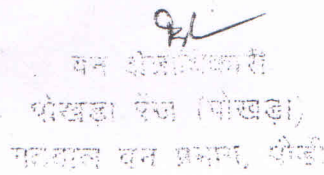 वन क्षेत्राधिकारी
पोखड़ा रेंज (पोखड़ा)
गढ़वाल वन प्रभाग, पौड़ी